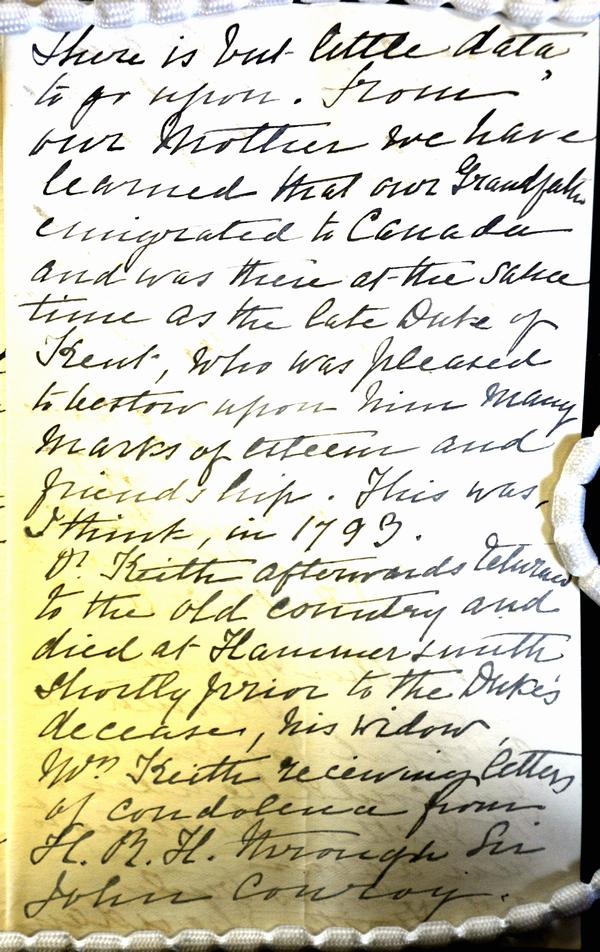 There is but little data
to go upon. From
our Mother we have
learned that our Grandfather
emigrated to Canada
and was there at the same
time as the late Duke of
Kent, who was pleased
to bestow upon him many
marks of esteem and
friendship. This was,
I think, in 1793.
Dr. Keith afterwards returned
to the old country and
died at Hammersmith
shortly prior to the Duke's
decease, his widow,
Mrs. Keith receiving letters
of condolence from
H. R. H. through Sir
John Conroy.